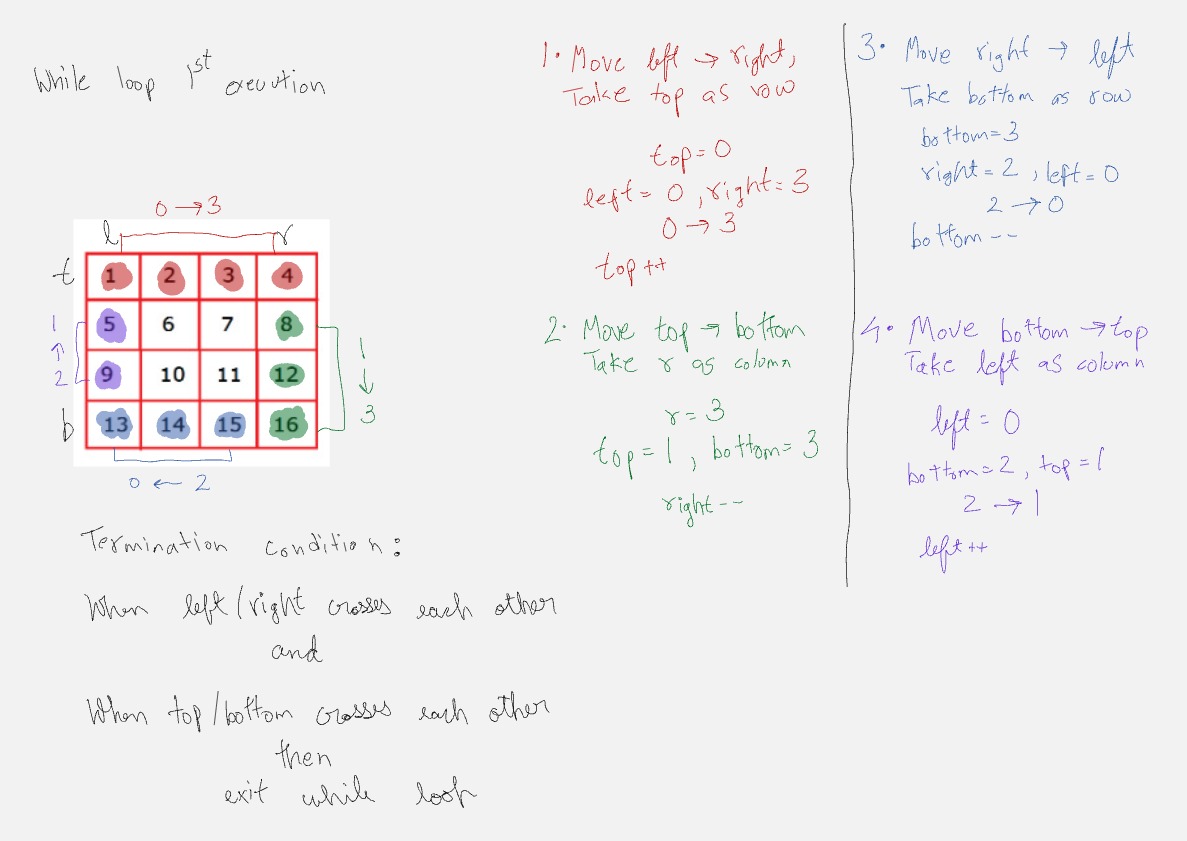 While loop 1st execution
0 → 3
l r
t 1 2 3 4
1 5 6 7 8 1
↑ ↓
2 9 10 11 12 3
b 13 14 15 16
0 ← 2
Termination condition:
When left/right crosses each other
and
When top/bottom crosses each other
then
exit while loop
1. Move left → right,
Take top as row
top = 0
left = 0, right = 3
0 → 3
top ++
2. Move top → bottom
Take r as column
r = 3
top = 1, bottom = 3
right --
3. Move right → left
Take bottom as row
bottom = 3
right = 2, left = 0
2 → 0
bottom --
4. Move bottom → top
Take left as column
left = 0
bottom = 2, top = 1
2 → 1
left ++